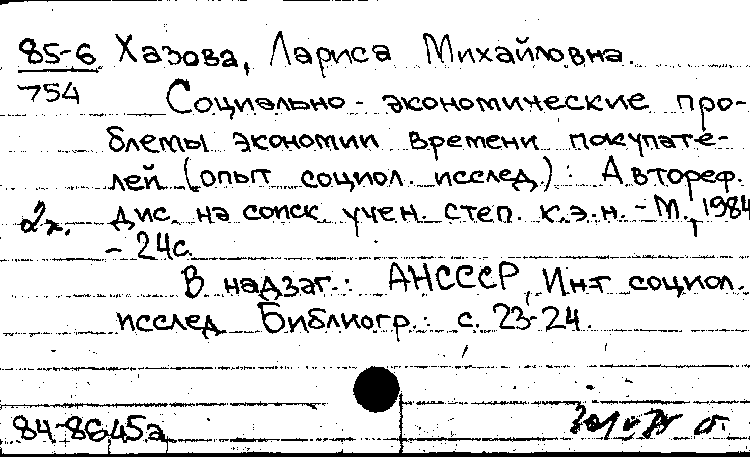 85-6 Хазова, Лариса Михайловна.
754
Социально-экономические про-
блемы экономии времени покупате-
лей (опыт социол. исслед.): Автореф.
2х. дис. на соиск. учен. степ. к.э.н. - М., 1984
- 24с.
В надзаг.: АНСССР, Ин-т социол.
исслед. Библиогр.: с. 23-24.
84-8645а